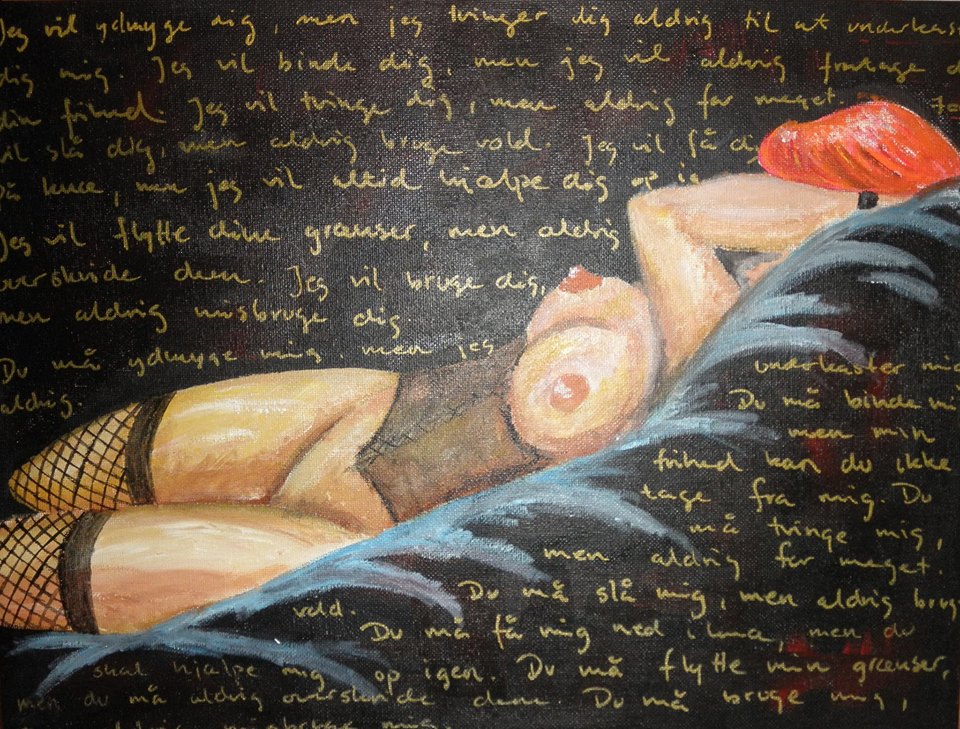 Jeg vil ydmyge dig, men jeg tvinger dig aldrig til at underkaste
dig mig. Jeg vil binde dig, men jeg vil aldrig fratage d
din frihed. Jeg vil tvinge dig, men aldrig for meget. Jeg
vil slå dig, men aldrig bruge vold. Jeg vil få dig
på knæ, men jeg vil altid hjælpe dig op ig
Jeg vil flytte dine grænser, men aldrig
overskride dem. Jeg vil bruge dig,
men aldrig misbruge dig.
Du må ydmyge mig, men jeg
underkaster mig
aldrig.
Du må binde mi
men min
frihed kan du ikke
tage fra mig. Du
må tvinge mig,
men aldrig for meget.
Du må slå mig, men aldrig brug
vold.
Du må få mig ned i knæ, men du
skal hjælpe mig op igen. Du må flytte min grænser,
men du må aldrig overskride dem. Du må bruge mig,
men aldrig misbruge mig.